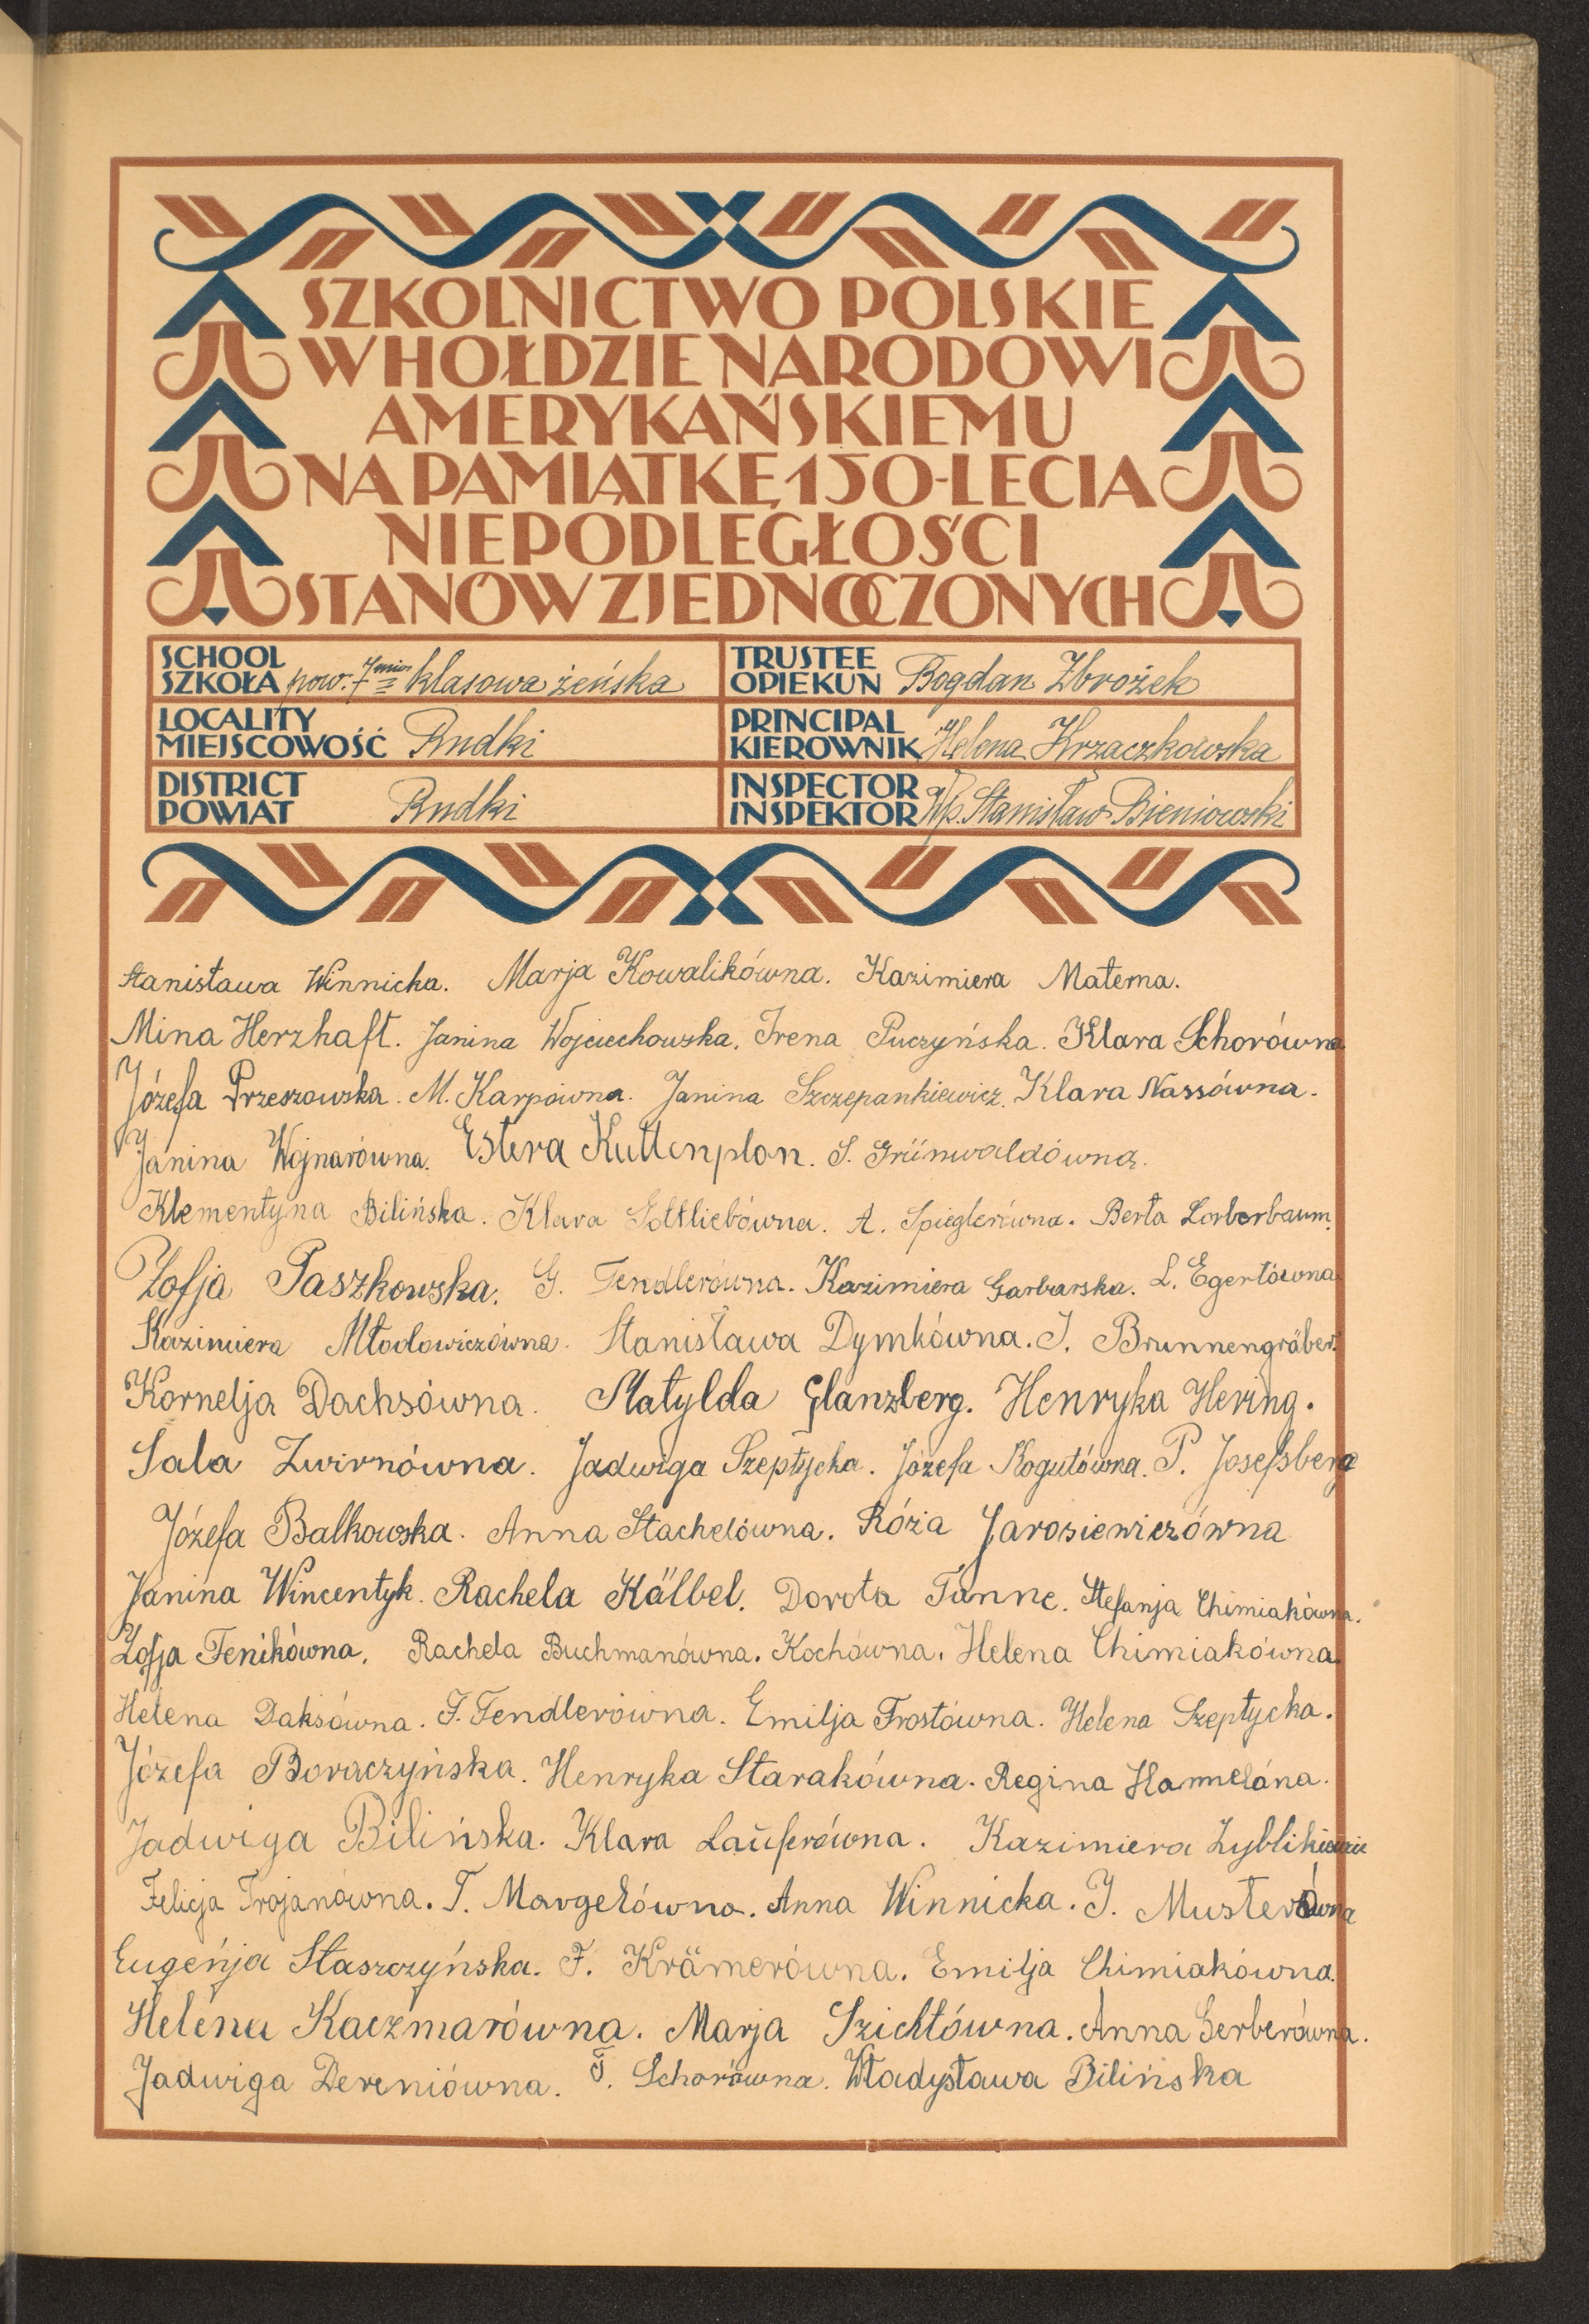 SZKOLNICTWO POLSKIE
W HOŁDZIE NARODOWI
AMERYKAŃSKIEMU
NA PAMIĄTKĘ 150-LECIA
NIEPODLEGŁOŚCI
STANÓW ZJEDNOCZONYCH
SCHOOL
SZKOŁA pow. 7mio klasowa żeńska
TRUSTEE
OPIEKUN Bogdan Zbrożek
LOCALITY
MIEJSCOWOŚĆ Rudki
PRINCIPAL
KIEROWNIK Helena Krzaczkowska
DISTRICT
POWIAT Rudki
INSPECTOR
INSPEKTOR Wp. Stanisław Bieniowski
Stanisława Winnicka. Marja Kowalikówna. Kazimiera Materna.
Mina Herzhaft. Janina Wojciechowska. Irena Puczyńska. Klara Schorówna
Józefa Przeszowska. M. Karpówna. Janina Szczepankiewicz. Klara Nassówna.
Janina Wojnarówna. Estera Kuttenplon. S. Grünwaldówna.
Klementyna Bilińska. Klara Gottliebówna. A. Spieglerówna. Berta Lorberbaum.
Zofja Paszkowska. G. Tendlerówna. Kazimiera Garbarska. L. Egertówna.
Kazimiera Młodowiczówna. Stanisława Dymkówna. I. Brunnengräber.
Kornelja Dachsówna. Matylda Glanzberg. Henryka Hering.
Sala Zwirnówna. Jadwiga Szeptycka. Józefa Kogutówna. P. Josefsberg
Józefa Balkowska. Anna Stachelówna. Róża Jarosiewiczówna
Janina Wincentyk. Rachela Kälbel. Dorota Tanne. Stefanja Chimiakówna.
Zofja Fenikówna. Rachela Buchmanówna. Kochówna. Helena Chimiakówna.
Helena Daksówna. F. Tendlerówna. Emilja Frostówna. Helena Szeptycka.
Józefa Boraczyńska. Henryka Starakówna. Regina
Jadwiga Bilińska. Klara Lauferówna. Kazimiera Zyblikiewicz
Felicja Trojanówna. T. Margelówna. Anna Winnicka. J. Musterówna
Eugenja Staszczyńska. F. Krämerówna. Emilja Chimiakówna.
Helena Kaczmarówna. Marja Szichtówna. Anna Gerberówna.
Jadwiga Dereniówna. T. Schorówna. Władysława Bilińska